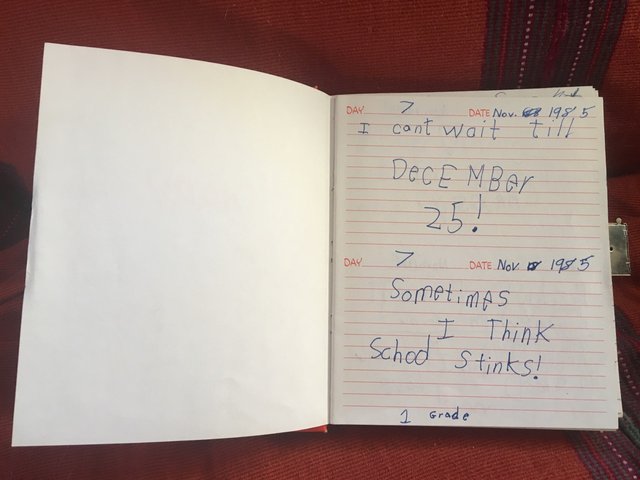 DAY 7 DATE Nov. 1985
I cant wait till
DecEMBer
25!
DAY 7 DATE Nov 1985
Sometimes
I Think
School Stinks!
1 Grade